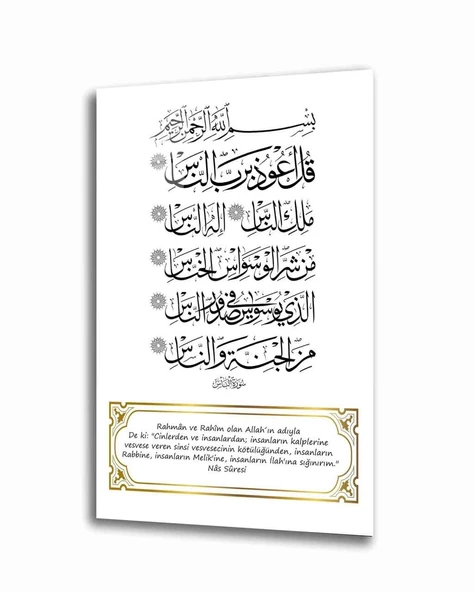 بِسْمِ اللَّهِ الرَّحْمَٰنِ الرَّحِيمِ
قُلْ أَعُوذُ بِرَبِّ النَّاسِ
مَلِكِ النَّاسِ إِلَٰهِ النَّاسِ
مِنْ شَرِّ الْوَسْوَاسِ الْخَنَّاسِ
الَّذِي يُوَسْوِسُ فِي صُدُورِ النَّاسِ
مِنَ الْجِنَّةِ وَالنَّاسِ
سورة الناس
Rahmân ve Rahîm olan Allah'ın adıyla
De ki: "Cinlerden ve insanlardan; insanların kalplerine
vesvese veren sinsi vesvesecinin kötülüğünden, insanların
Rabbine, insanların Melik'ine, insanların İlah'ına sığınırım."
Nâs Sûresi